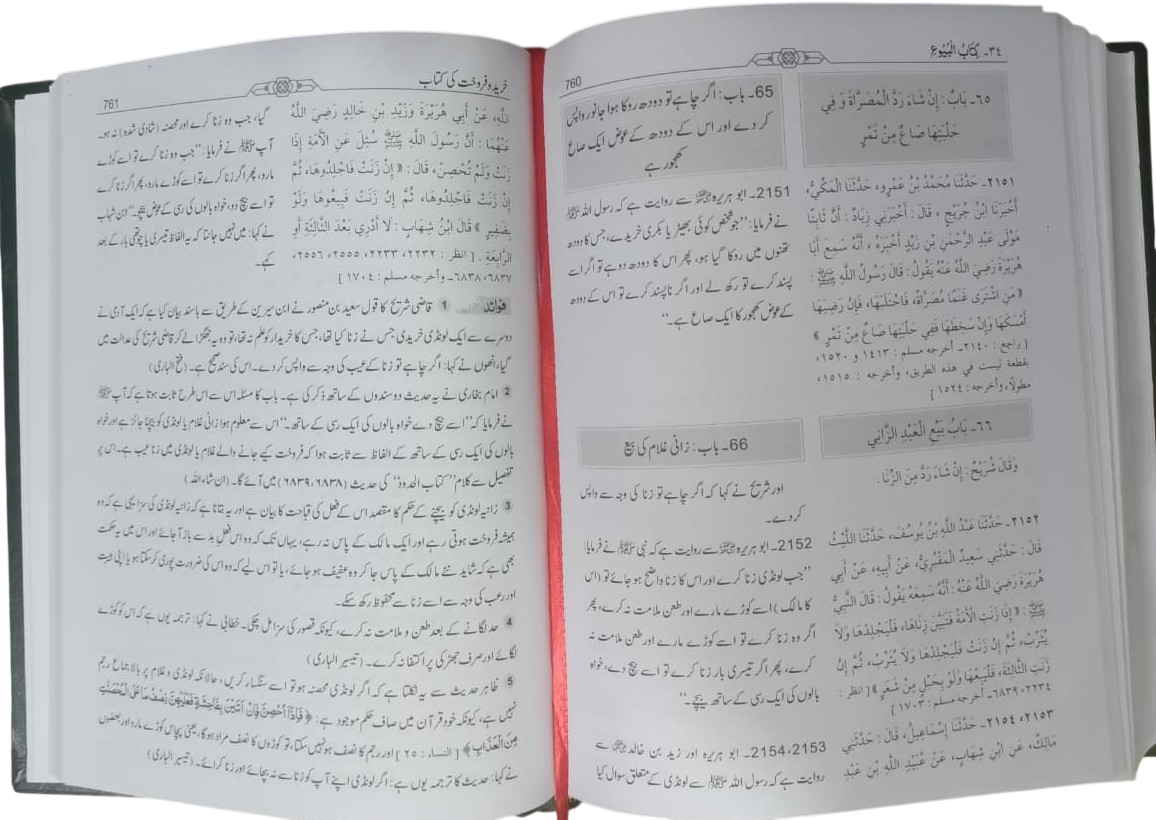 760
٣٤۔ كِتَابُ الْبُيُوعِ
٦٥۔ بَابٌ : إِنْ شَاءَ رَدَّ الْمُصَرَّاةَ وَ فِي
حَلْبَتِهَا صَاعٌ مِنْ تَمْرٍ
٢١٥١۔ حَدَّثَنَا مُحَمَّدُ بْنُ عَمْرٍو، حَدَّثَنَا الْمَكِّيُّ،
أَخْبَرَنَا ابْنُ جُرَيْجٍ ، قَالَ : أَخْبَرَنِي زِيَادٌ : أَنَّ ثَابِتًا
مَوْلَى عَبْدِ الرَّحْمٰنِ بْنِ زَيْدٍ أَخْبَرَهُ ، أَنَّهُ سَمِعَ أَبَا
هُرَيْرَةَ رَضِيَ اللّٰهُ عَنْهُ يَقُولُ : قَالَ رَسُولُ اللّٰهِ ﷺ :
« مَنِ اشْتَرَى غَنَمًا مُصَرَّاةً، فَاحْتَلَبَهَا، فَإِنْ رَضِيَهَا
أَمْسَكَهَا وَإِنْ سَخِطَهَا فَفِي حَلْبَتِهَا صَاعٌ مِنْ تَمْرٍ »
[ راجع : ٢١٤٠۔ أخرجه مسلم : ١٤١٣ و ١٥٢٠،
بقطعة ليست في هذه الطريق، وأخرجه : ١٥١٥،
مطولاً، وأخرجه : ١٥٢٤ ]
٦٦۔ بَابُ بَيْعِ الْعَبْدِ الزَّانِي
وَقَالَ شُرَيْحٌ : إِنْ شَاءَ رَدَّ مِنَ الزِّنَا .
٢١٥٢۔ حَدَّثَنَا عَبْدُ اللّٰهِ بْنُ يُوسُفَ، حَدَّثَنَا اللَّيْثُ
قَالَ : حَدَّثَنِي سَعِيدٌ الْمَقْبُرِيُّ، عَنْ أَبِيهِ، عَنْ أَبِي
هُرَيْرَةَ رَضِيَ اللّٰهُ عَنْهُ : أَنَّهُ سَمِعَهُ يَقُولُ : قَالَ النَّبِيُّ
ﷺ : « إِذَا زَنَتِ الْأَمَةُ فَتَبَيَّنَ زِنَاهَا، فَلْيَجْلِدْهَا وَلَا
يُثَرِّبْ، ثُمَّ إِنْ زَنَتْ فَلْيَجْلِدْهَا وَلَا يُثَرِّبْ، ثُمَّ إِنْ
زَنَتِ الثَّالِثَةَ، فَلْيَبِعْهَا وَلَوْ بِحَبْلٍ مِنْ شَعَرٍ »[ انظر :
٢٢٣٤، ٦٨٣٩۔ أخرجه مسلم : ١٧٠٣ ]
٢١٥٣، ٢١٥٤۔ حَدَّثَنَا إِسْمَاعِيلُ، قَالَ : حَدَّثَنِي
مَالِكٌ، عَنِ ابْنِ شِهَابٍ، عَنْ عُبَيْدِ اللّٰهِ بْنِ عَبْدِ
65۔ باب : اگر چاہے تو دودھ روکا ہوا جانور واپس
کر دے اور اس کے دودھ کے عوض ایک صاع
کھجور ہے
2151۔ ابو ہریرہ رضی اللہ عنہ سے روایت ہے کہ رسول اللہ ﷺ
نے فرمایا: ”جو شخص کوئی بھیڑ یا بکری خریدے، جس کا دودھ
تھنوں میں روکا گیا ہو، پھر اس کا دودھ دو ہے تو اگر اسے
پسند کرے تو رکھ لے اور اگر ناپسند کرے تو اس کے دودھ
کے عوض کھجور کا ایک صاع ہے۔“
66۔ باب : زانی غلام کی بیع
اور شریح نے کہا کہ اگر چاہے تو زنا کی وجہ سے واپس
کر دے۔
2152۔ ابو ہریرہ رضی اللہ عنہ سے روایت ہے کہ نبی ﷺ نے فرمایا:
”جب لونڈی زنا کرے اور اس کا زنا واضح ہو جائے تو (اس
کا مالک) اسے کوڑے مارے اور طعن ملامت نہ کرے، پھر
اگر وہ زنا کرے تو اسے کوڑے مارے اور طعن ملامت نہ
کرے، پھر اگر تیسری بار زنا کرے تو اسے بیچ دے، خواہ
بالوں کی ایک رسی کے ساتھ بیچے۔“
2154،2153۔ ابو ہریرہ اور زید بن خالد رضی اللہ عنہما سے
روایت ہے کہ رسول اللہ ﷺ سے لونڈی کے متعلق سوال کیا
761
خرید و فروخت کی کتاب
اللّٰهِ، عَنْ أَبِي هُرَيْرَةَ وَزَيْدِ بْنِ خَالِدٍ رَضِيَ اللّٰهُ
عَنْهُمَا : أَنَّ رَسُولَ اللّٰهِ ﷺ سُئِلَ عَنِ الْأَمَةِ إِذَا
زَنَتْ وَلَمْ تُحْصِنْ، قَالَ : « إِنْ زَنَتْ فَاجْلِدُوهَا، ثُمَّ
إِنْ زَنَتْ فَاجْلِدُوهَا، ثُمَّ إِنْ زَنَتْ فَبِيعُوهَا وَلَوْ
بِضَفِيرٍ » قَالَ ابْنُ شِهَابٍ : لَا أَدْرِي بَعْدَ الثَّالِثَةِ أَوِ
الرَّابِعَةِ . [ انظر : ٢٢٣٢، ٢٢٣٣، ٢٥٥٥، ٢٥٥٦،
٦٨٣٧، ٦٨٣٨۔ وأخرجه مسلم : ١٧٠٤ ]
گیا، جب وہ زنا کرے اور محصنہ (شادی شدہ) نہ ہو۔
آپ ﷺ نے فرمایا: ”جب وہ زنا کرے تو اسے کوڑے
مارو، پھر اگر زنا کرے تو اسے کوڑے مارو، پھر اگر زنا کرے
تو اسے بیچ دو، خواہ بالوں کی رسی کے عوض بیچو۔“ ابن شہاب
نے کہا: میں نہیں جانتا کہ یہ الفاظ تیسری یا چوتھی بار کے بعد
کہے۔
فوائد 1 قاضی شریح کا قول سعید بن منصور نے ابن سیرین کے طریق سے باسند بیان کیا ہے کہ ایک آدمی نے
دوسرے سے ایک لونڈی خریدی جس نے زنا کیا تھا، جس کا خریدار کو علم نہ تھا، تو وہ یہ جھگڑا لے کر قاضی شریح کی عدالت میں
گیا، انھوں نے کہا : اگر چاہے تو زنا کے عیب کی وجہ سے واپس کر دے۔ اس کی سند صحیح ہے۔ (فتح الباری)
2 امام بخاری نے یہ حدیث دو سندوں کے ساتھ ذکر کی ہے۔ باب کا مسئلہ اس سے اس طرح ثابت ہوتا ہے کہ آپ ﷺ
نے فرمایا کہ ”اسے بیچ دے خواہ بالوں کی ایک رسی کے ساتھ۔“ اس سے معلوم ہوا زانی غلام یا لونڈی کو بیچنا جائز ہے اور خواہ
بالوں کی ایک رسی کے ساتھ کے الفاظ سے ثابت ہوا کہ فروخت کیے جانے والے غلام یا لونڈی میں زنا عیب ہے۔ اس پر
تفصیل سے کلام ”کتاب الحدود“ کی حدیث (۶۸۳۸، ۶۸۳۹) میں آئے گا۔ (ان شاء اللہ)
3 زانیہ لونڈی کو بیچنے کے حکم کا مقصد اس کے فعل کی قباحت کا بیان ہے اور یہ بتانا ہے کہ زانیہ لونڈی کی سزا یہی ہے کہ وہ
ہمیشہ فروخت ہوتی رہے اور ایک مالک کے پاس نہ رہے، یہاں تک کہ وہ اس فعل بد سے باز آ جائے اور اس میں یہ حکمت
بھی ہے کہ شاید نئے مالک کے پاس جا کر وہ عفیف ہو جائے، یا تو اس لیے کہ وہ اس کی ضرورت پوری کر سکتا ہو یا اپنی ہیبت
اور رعب کی وجہ سے اسے زنا سے محفوظ رکھ سکے۔
4 حد لگانے کے بعد طعن و ملامت نہ کرے، کیونکہ قصور کی سزا مل چکی۔ خطابی نے کہا: ترجمہ یوں ہے کہ اس کو کوڑے
لگائے اور صرف جھڑکی پر اکتفا نہ کرے۔ (تیسیر الباری)
5 ظاہر حدیث سے یہ نکلتا ہے کہ اگر لونڈی محصنہ ہو تو اسے سنگسار کریں، حالانکہ لونڈی و غلام پر بالاجماع رجم
نہیں ہے، کیونکہ خود قرآن میں صاف حکم موجود ہے : ﴿ فَاِذَاۤ اُحْصِنَّ فَاِنْ اَتَيْنَ بِفَاحِشَةٍ فَعَلَيْهِنَّ نِصْفُ مَا عَلَى الْمُحْصَنٰتِ
مِنَ الْعَذَابِ ﴾ [ النساء : ٢٥ ] اور رجم کا نصف ہو نہیں سکتا، تو کوڑوں کا نصف مراد ہوگا، یعنی پچاس کوڑے مارو اور بعضوں
نے کہا: حدیث کا ترجمہ یوں ہے: اگر لونڈی اپنے آپ کو زنا سے نہ بچائے اور زنا کرائے۔ (تیسیر الباری)